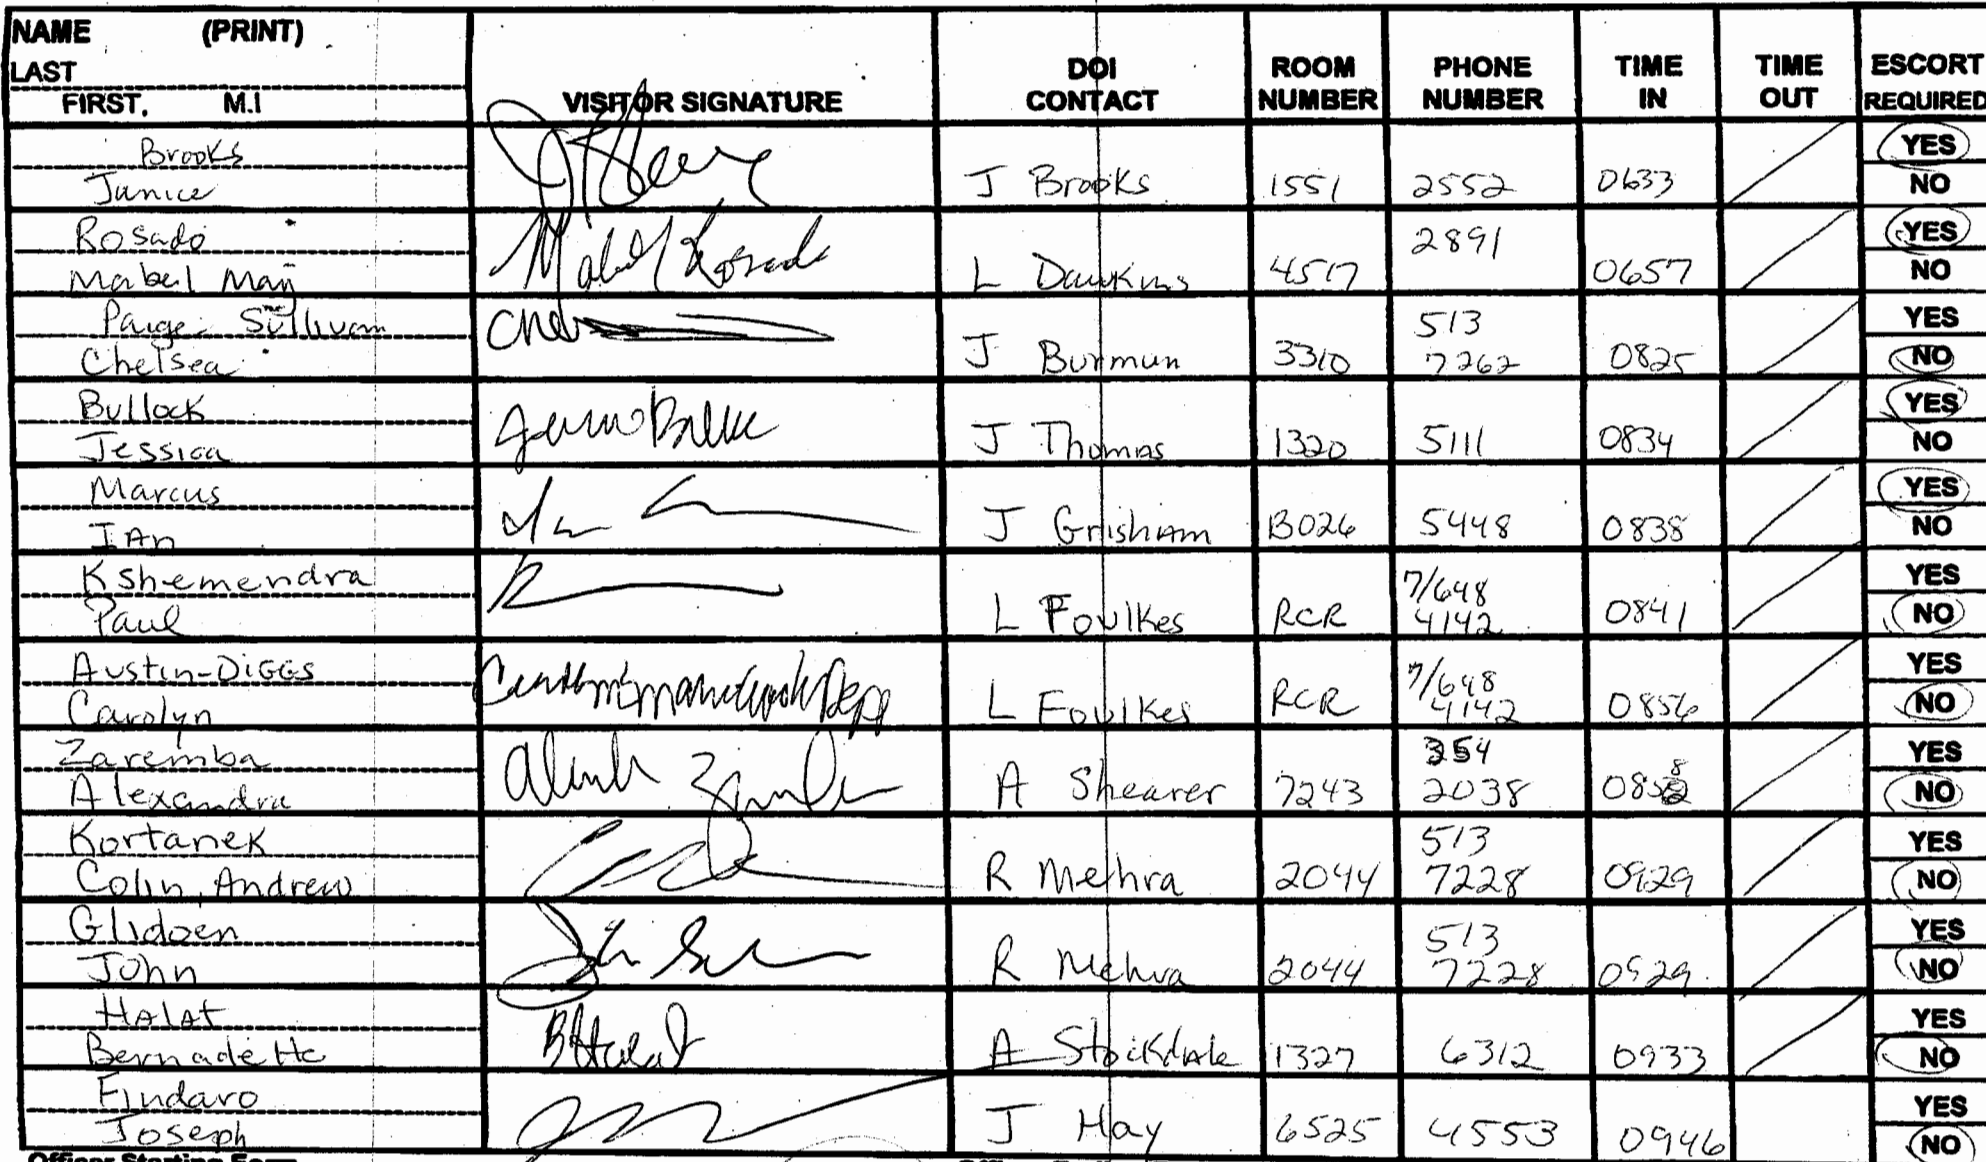 NAME (PRINT)
LAST
FIRST, M.I
VISITOR SIGNATURE
DOI CONTACT
ROOM NUMBER
PHONE NUMBER
TIME IN
TIME OUT
ESCORT REQUIRED
Brooks
Janice
J Brooks 1551 2552 0633 YES NO
Rosado
Mabel May
Mabel Rosado
L Dawkins 4517 2891 0657 YES NO
Paige Sullivan
Chelsea
J Burman 3310 513 7262 0825 YES NO
Bullock
Jessica
J Thomas 1320 5111 0834 YES NO
Marcus
IAn
J Grisham B026 5448 0838 YES NO
Kshemendra
Paul
L Foulkes RCR 7/648 4142 0841 YES NO
Austin-Diggs
Carolyn
L Foulkes RCR 7/648 4142 0856 YES NO
Zaremba
Alexandra
A Shearer 7243 354 2038 YES NO
Kortanek
Colin, Andrew
R Mehra 2044 513 7228 0929 YES NO
Glidden
John
R Mehra 2044 513 7228 0929 YES NO
HALAT
Bernadette
BHalat
A Stockdale 1327 6312 0933 YES NO
Findaro
Joseph
J Hay 6525 4553 0946 YES NO
Officer Starting Form